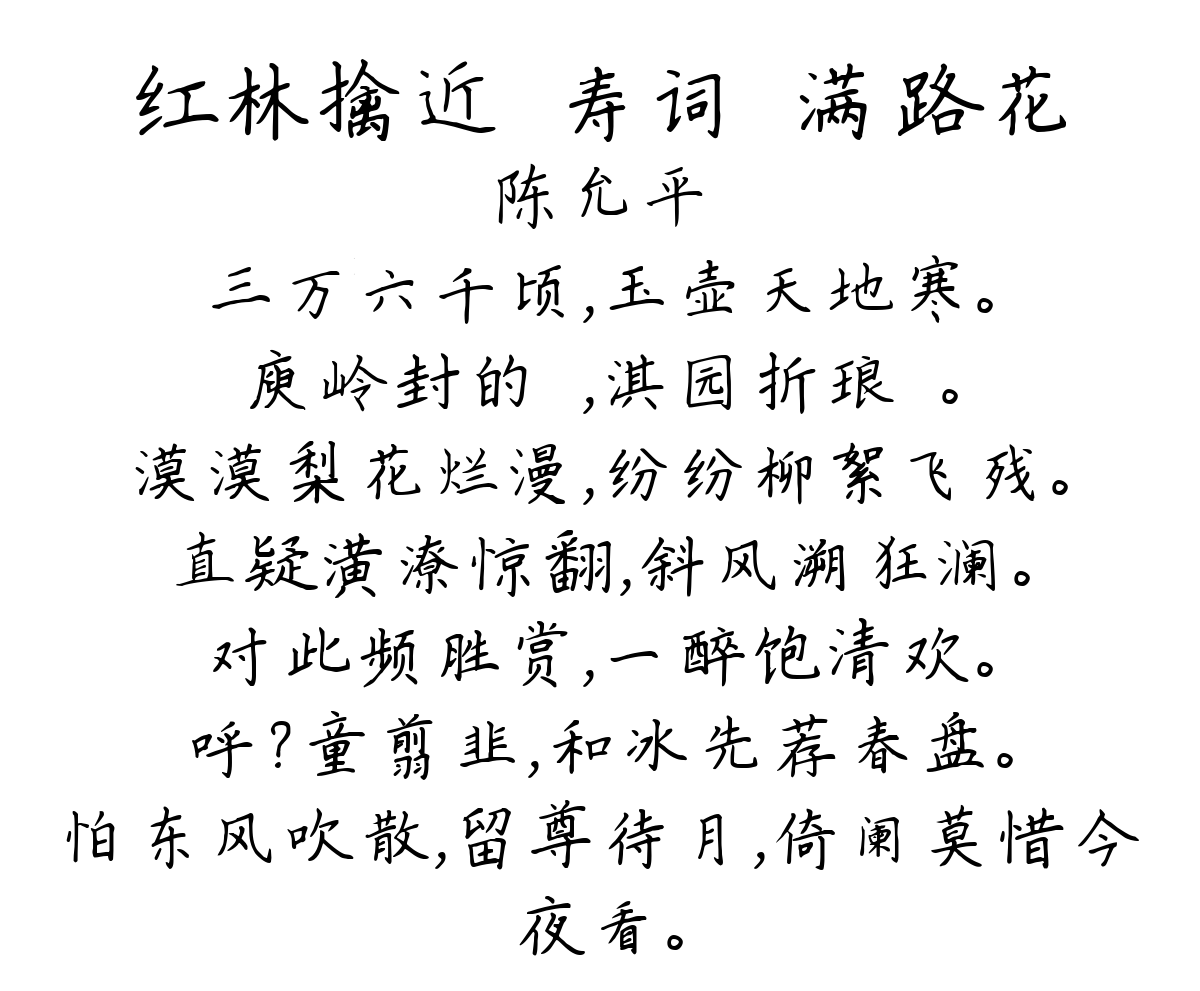 红林擒近 寿词 满路花
陈允平
三万六千顷,玉壶天地寒。
庾岭封的 ,淇园折琅 。
漠漠梨花烂漫,纷纷柳絮飞残。
直疑潢潦惊翻,斜风溯狂澜。
对此频胜赏,一醉饱清欢。
呼?童翦韭,和冰先荐春盘。
怕东风吹散,留尊待月,倚阑莫惜今
夜看。